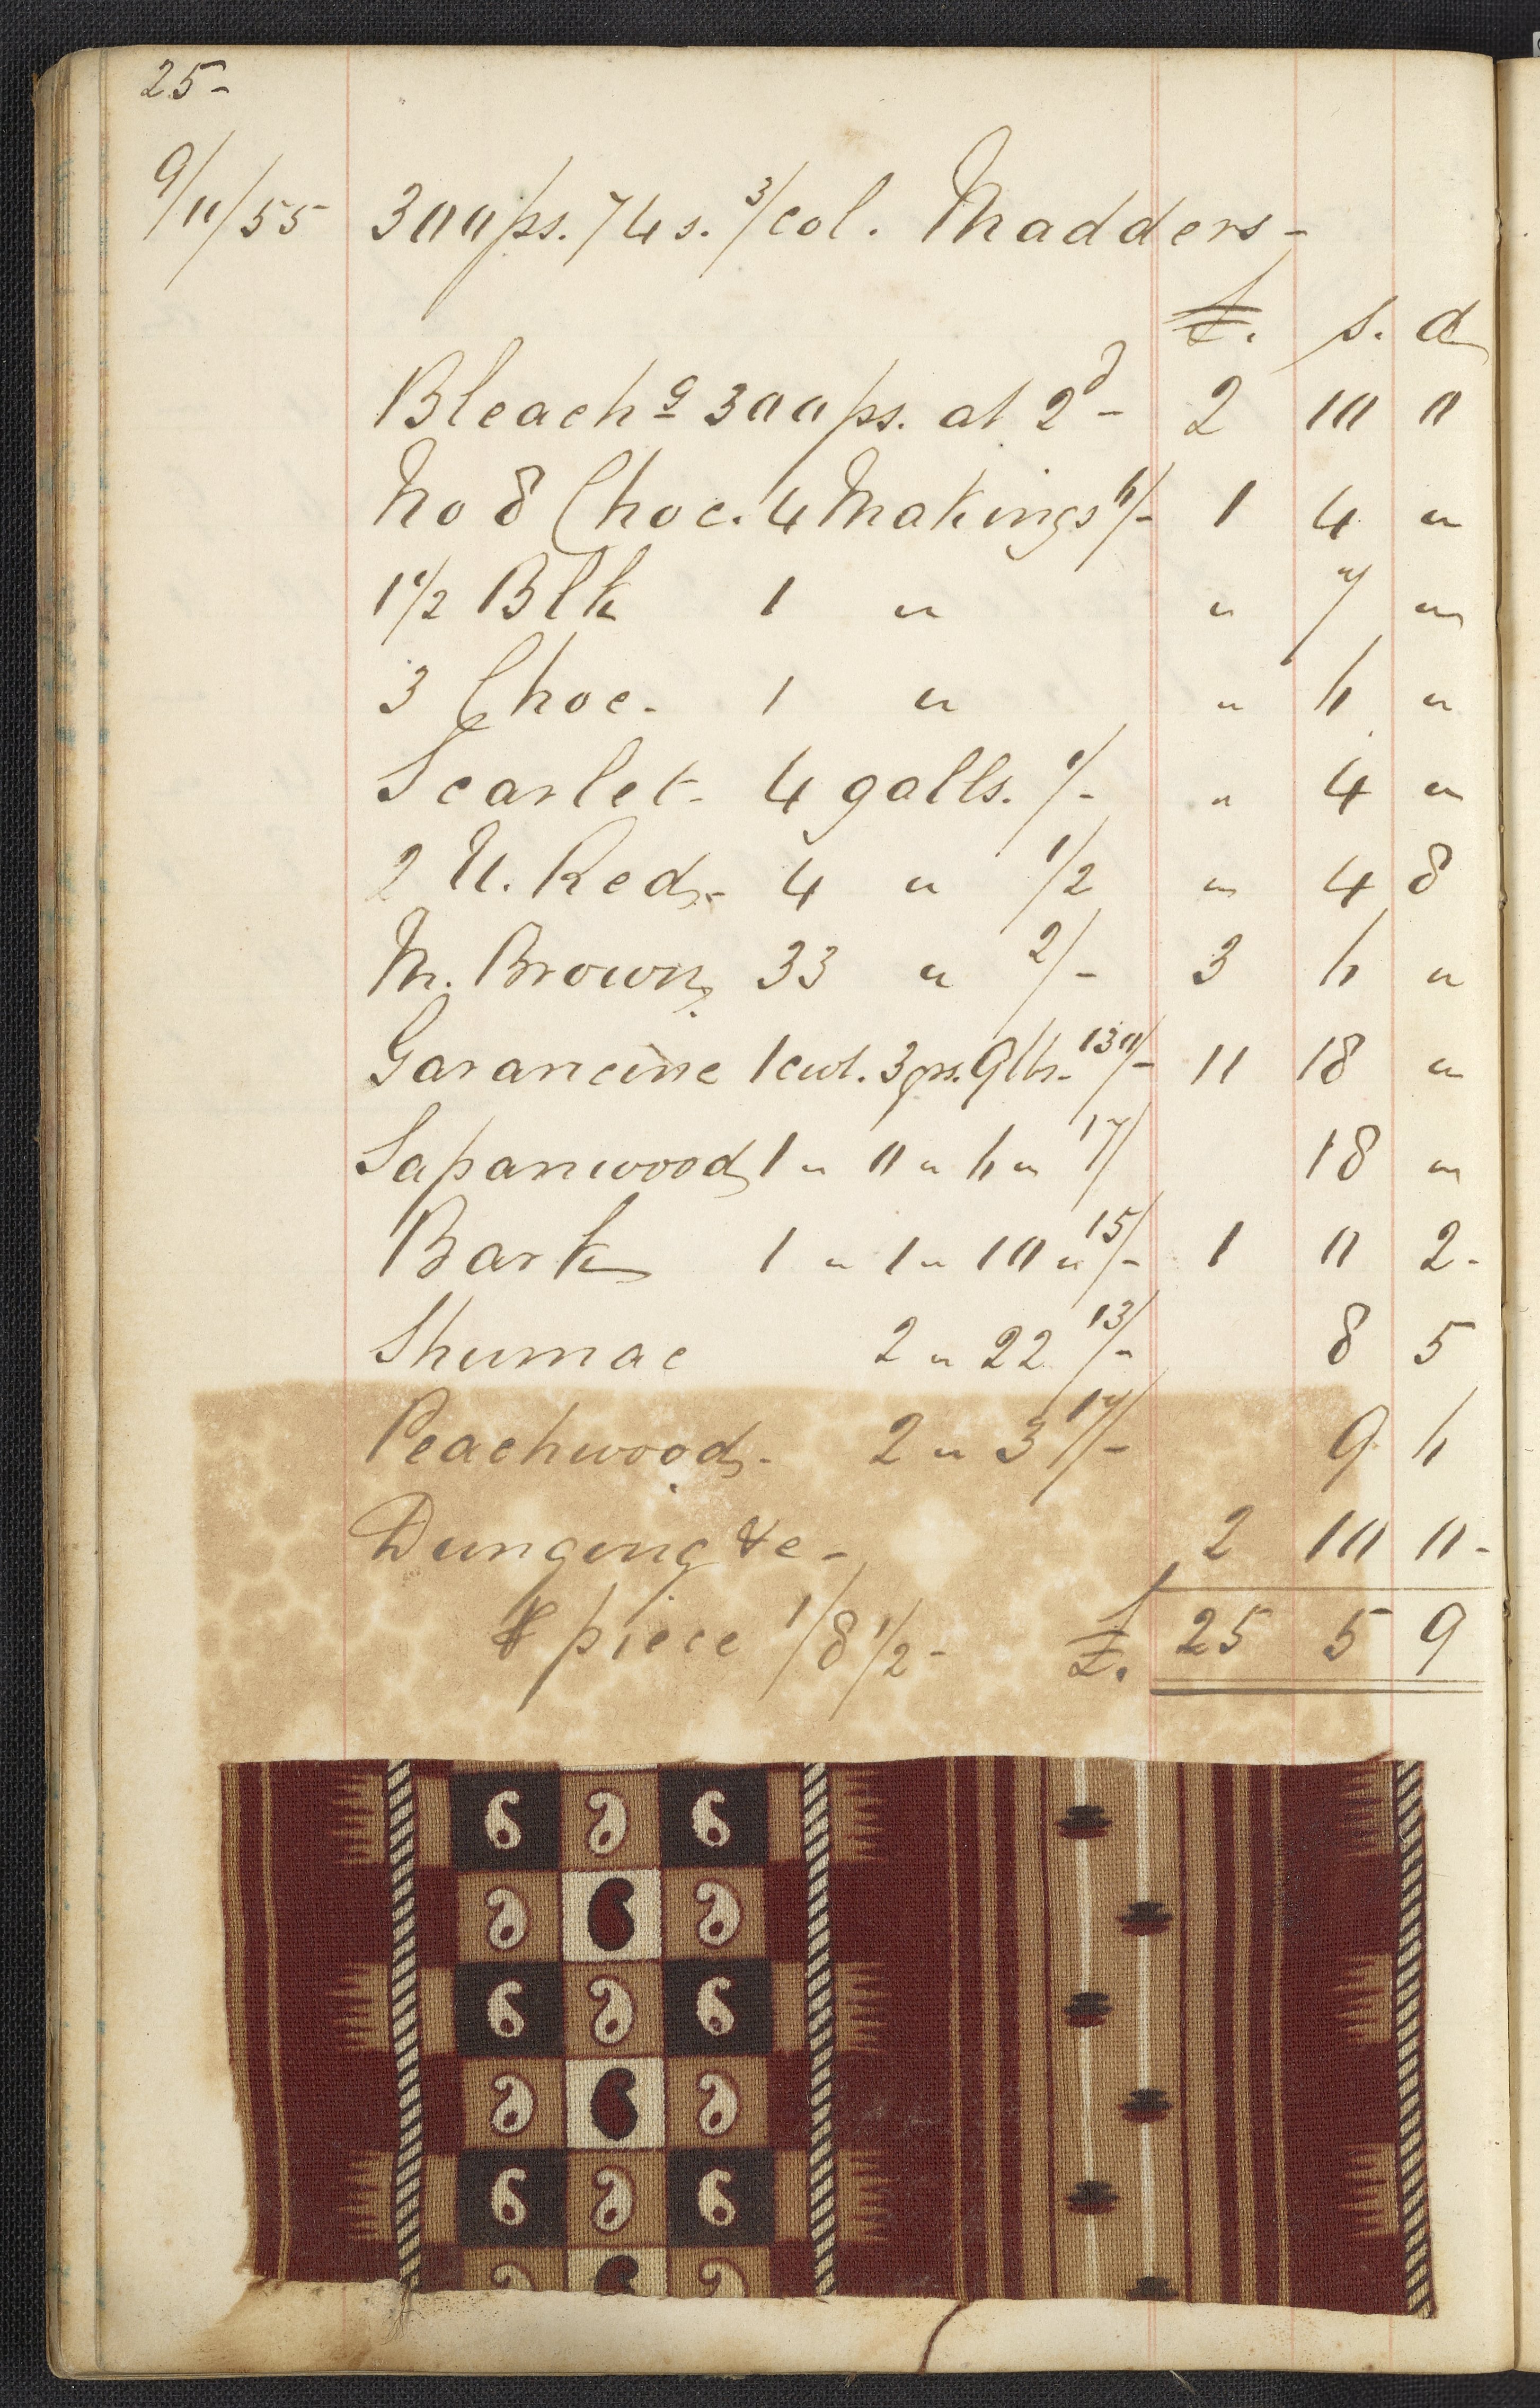 25-
9/11/55 300 ps. 74s. 3/col. Madders-
£. s. d
Bleachg 300 ps. at 2d - 2 10 0
No 8 Choc. 4 Makings 6/- 1 4 "
1 1/2 Blk 1 " " 7 "
3 Choc. 1 " " 6 "
Scarlet- 4 galls. 1/- " 4 "
2 U. Red,- 4 " 1/2 " 4 8
M. Brown, 33 " 2/- 3 6 "
Garancine 1cwt. 3qrs. 9lbs. 130/- 11 18 "
Sapanwood 1 " 0 " 6 " 17/ 18 "
Bark 1 " 1 " 10 " 15/- 1 0 2-
Shumac 2 " 22 13/- 8 5
Peachwood,- 2 " 3 17/- 9 6
Dunging &c- 2 10 0-
℔ piece 1/8 1/2- £. 25 5 9